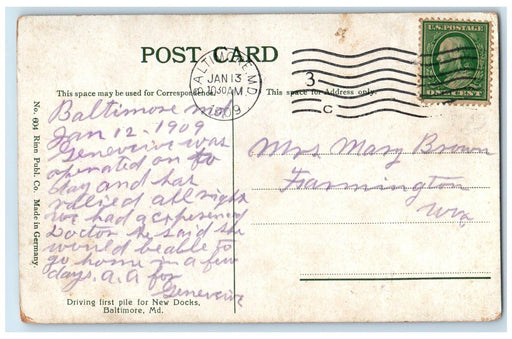 POST CARD
BALTIMORE, MD.
JAN 13
1030AM
1909
3
C
U.S. POSTAGE
ONE CENT
This space may be used for Correspondence.
This space for Address only.
Baltimore Md
Jan 12 - 1909
Genevieve was
operated on to
day and has
rallied all right
we had a
Doctor he said she
would be able to
go home in a few
days. a.a for
Genevieve
Mrs Mary Brown
Farmington
No. 604 Rinn Publ. Co. Made in Germany.
Driving first pile for New Docks,
Baltimore, Md.